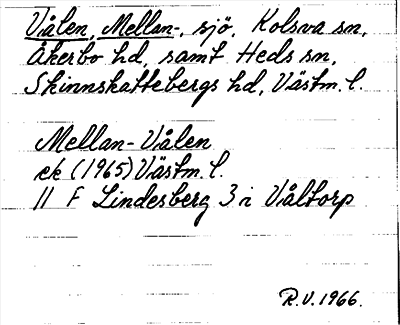 Vålen, Mellan-, sjö, Kolsva sn,
Åkerbo hd, samt Heds sn,
Skinnskattebergs hd, Västm. l.
Mellan-Vålen
ek (1965) Västm. l.
11 F Lindesberg 3 i Våltorp
R.V. 1966.